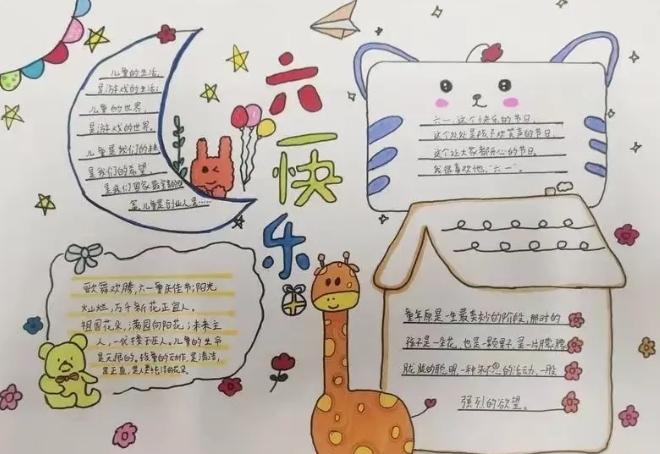 六一快乐
儿童的生活,
是游戏的生活;
儿童的世界,
是游戏的世界。
儿童是我们的
是我们的希望,
是我们国家
六一,这个快乐的节日,
这个处处是孩子欢笑声的节日,
这个让大家都开心的节日,
我很喜欢他,"六一"。
歌舞欢腾,六一童庆佳节;阳光
灿烂,万千新花正宜人。
祖国花朵,满园向阳花;未来主
人,一代接
儿童的生命
童年原是一生最美妙的阶段,那时的
孩子是一朵花,也是一颗果子,是一片朦朦
胧胧的聪明,一种不息的活动,一股
强烈的欲望。